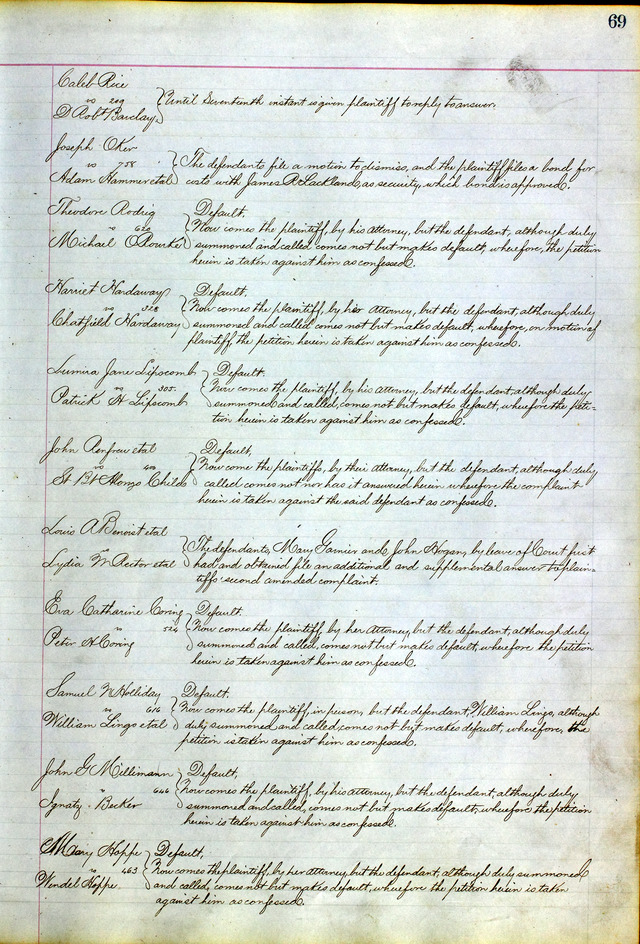 69
Caleb Rice
vs 209 Until Seventeenth instant is given plaintiff to reply to answer.
D Robt Barclay
Joseph Oker
vs 758 The defendants file a motion to dismiss, and the plaintiff files a bond for
Adam Hammer etal costs with James R Lackland, as security, which bond is approved.
Theodore Rodrig Default.
vs 620 Now comes the plaintiff, by his Attorney, but the defendant, although duly
Michael O'Rourke summoned and called, comes not but makes default, wherefore, the petition
herein is taken against him as confessed.
Harriet Hardaway Default.
vs 328 Now comes the plaintiff, by her Attorney, but the defendant, although duly
Chatfield Hardaway summoned and called comes not but makes default, wherefore, on motion of
plaintiff, the petition herein is taken against him as confessed.
Lumira Jane Lipscomb Default.
vs 305 Now comes the plaintiff, by his Attorney, but the defendant, although duly
Patrick H Lipscomb summoned and called, comes not but makes default, wherefore the peti-
tion herein is taken against him as confessed.
John Renfrew etal Default,
vs Now come the plaintiffs, by their Attorney, but the defendant, although duly
Alonzo Childs called comes not nor has it answered herein wherefore the complaint
herein is taken against the said defendant as confessed.
Louis A Benoist etal
vs The defendants, Mary Garnier and John Hogan, by leave of Court first
Lydia W Rector etal had and obtained file an additional and supplemental answer to plain-
tiffs' second amended complaint.
Eva Catharine Coring Default.
vs 524 Now comes the plaintiff, by her Attorney, but the defendant, although duly
Peter H Coring summoned and called, comes not but makes default, wherefore the petition
herein is taken against him as confessed.
Samuel N Holliday Default.
vs 616 Now comes the plaintiff, in person, but the defendant, William Lingo, although
William Lingo etal duly summoned and called, comes not but makes default, wherefore, the
petition is taken against him as confessed.
John G Millimann Default,
vs 646 Now comes the plaintiff, by his attorney, but the defendant, although duly
Ignatz Becker summoned and called, comes not but makes default, wherefore the petition
herein is taken against him as confessed.
Mary Hoppe Default,
vs 463 Now comes the plaintiff, by her Attorney, but the defendant, although duly summoned
Wendel Hoppe and called, comes not but makes default, wherefore the petition herein is taken
against him as confessed.